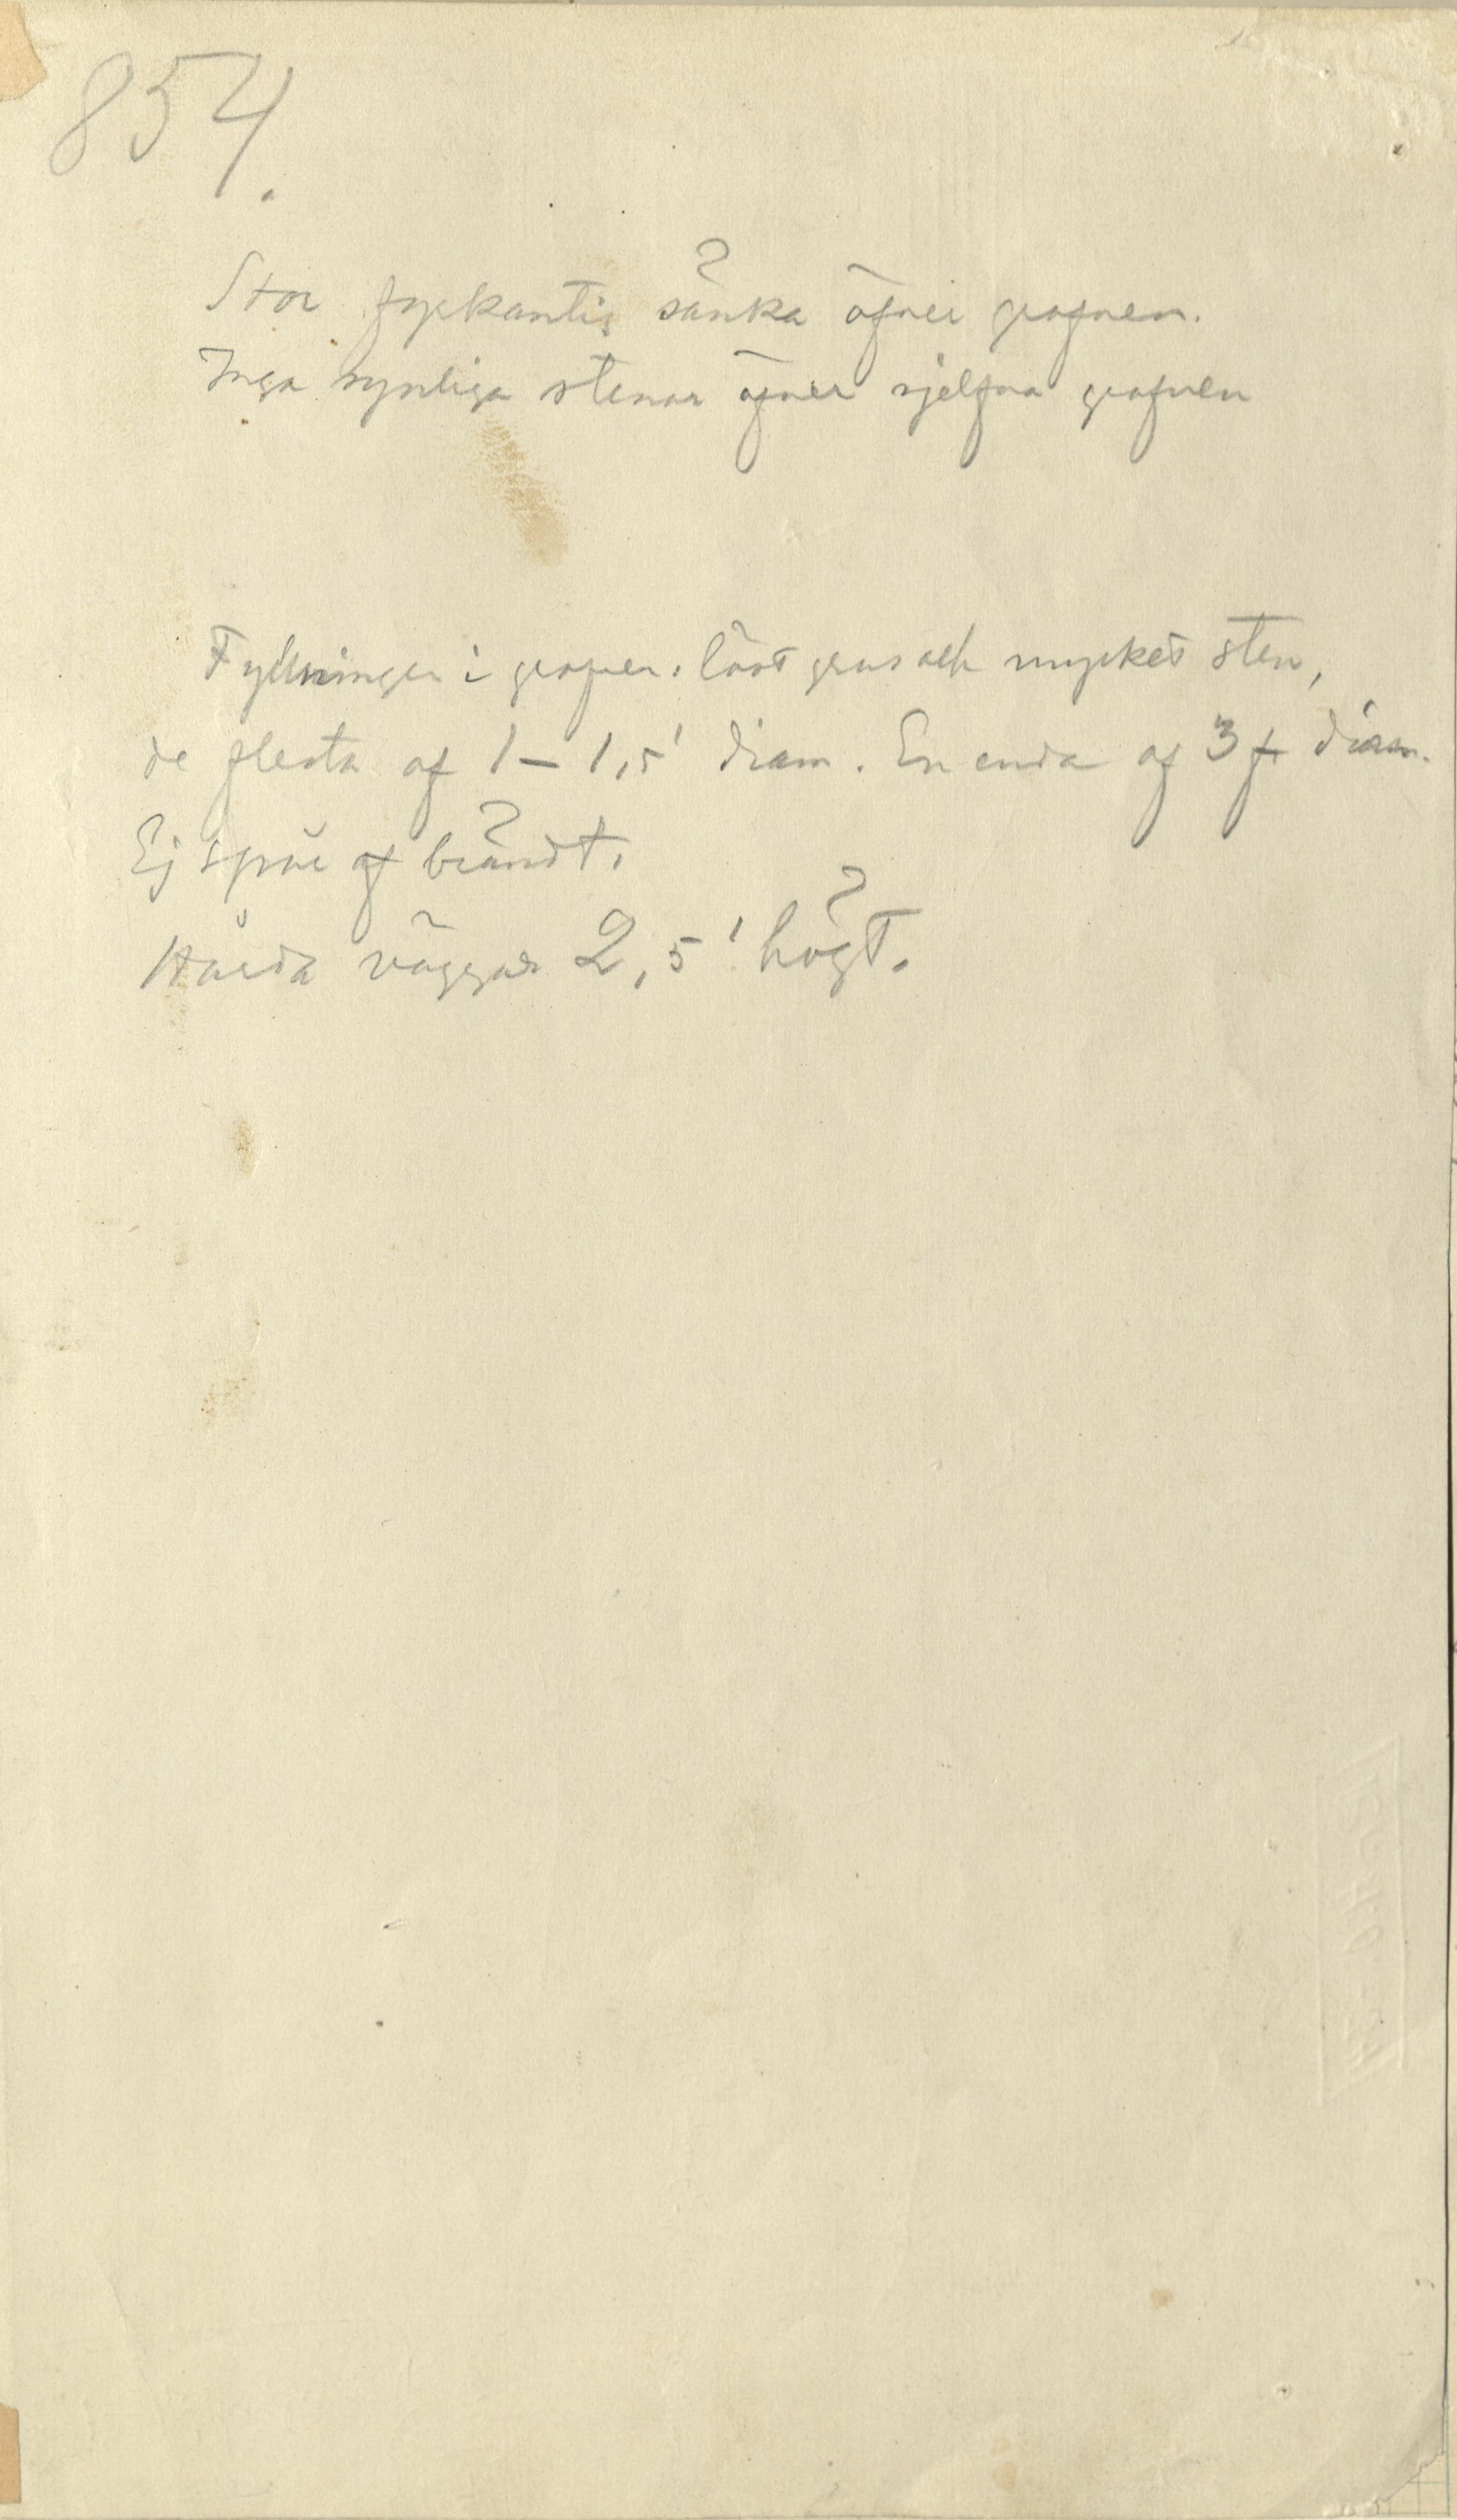 854.
Stor fyrkantig sänka öfver grafven.
Inga synliga stenar öfver sjelfva grafven
Fyllningen i grafven: löst grus och mycket sten,
de flesta af 1 – 1,5' diam. En enda af 3 f diam.
Ej spår af brändt.
Hårda väggar 2,5' högt.